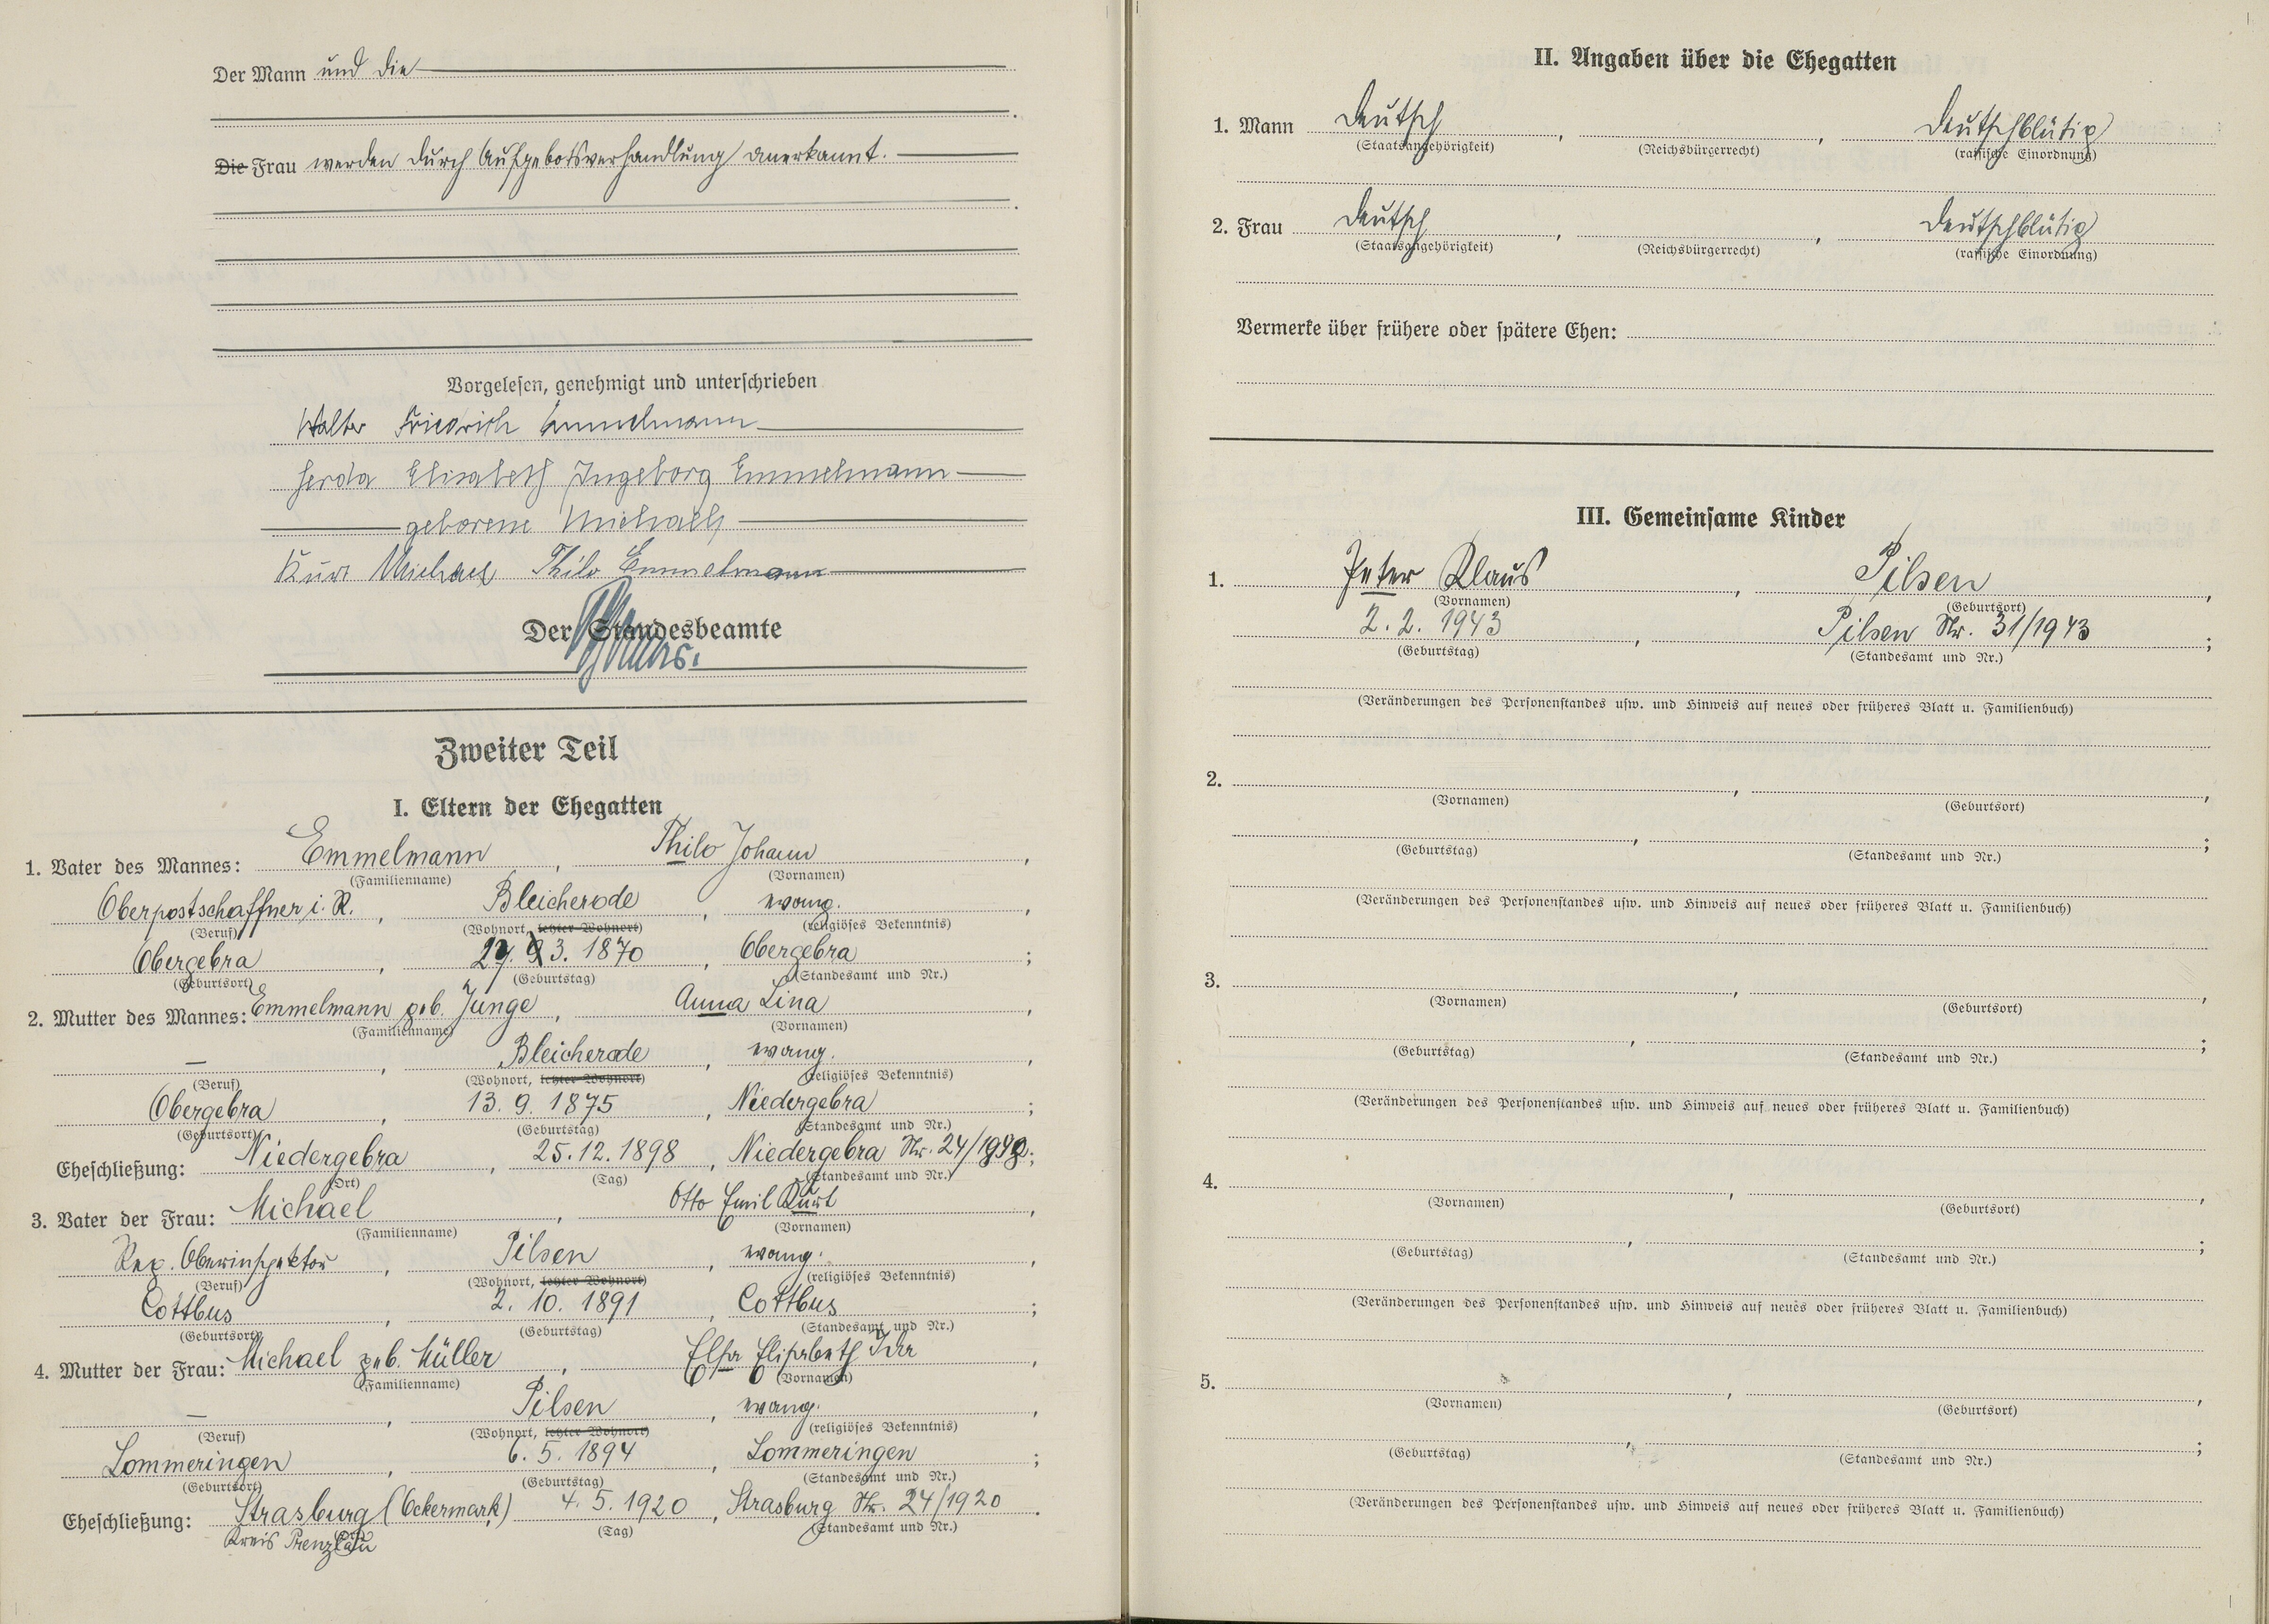 Der Mann und die
Die Frau werden durch Aufgebotsverhandlung anerkannt.
Vorgelesen, genehmigt und unterschrieben
Walter Friedrich Emmelmann
Gerda Elisabeth Ingeborg Emmelmann
geborene Michael
Kurt Michael Thilo Emmelmann
Der Standesbeamte
Zweiter Teil
I. Eltern der Ehegatten
1. Vater des Mannes: Emmelmann, Thilo Johann,
(Familienname) (Vornamen)
Oberpostschaffner i. R., Bleicherode, evang.,
(Beruf) (Wohnort, letzter Wohnort) (religiöses Bekenntnis)
Obergebra, 3. 1870, Obergebra;
(Geburtsort) (Geburtstag) (Standesamt und Nr.)
2. Mutter des Mannes: Emmelmann geb. Junge, Anna Lina,
(Familienname) (Vornamen)
—, Bleicherode, evang.,
(Beruf) (Wohnort, letzter Wohnort) (religiöses Bekenntnis)
Obergebra, 13. 9. 1875, Niedergebra;
(Geburtsort) (Geburtstag) (Standesamt und Nr.)
Eheschließung: Niedergebra, 25. 12. 1898, Niedergebra Nr. 24/;
(Ort) (Tag) (Standesamt und Nr.)
3. Vater der Frau: Michael, Otto Emil Kurt,
(Familienname) (Vornamen)
Reg. Oberinspektor, Pilsen, evang.,
(Beruf) (Wohnort, letzter Wohnort) (religiöses Bekenntnis)
Cottbus, 2. 10. 1891, Cottbus;
(Geburtsort) (Geburtstag) (Standesamt und Nr.)
4. Mutter der Frau: Michael geb. Müller, Elsa Elisabeth Ida,
(Familienname) (Vornamen)
—, Pilsen, evang.,
(Beruf) (Wohnort, letzter Wohnort) (religiöses Bekenntnis)
Lommeringen, 6. 5. 1894, Lommeringen;
(Geburtsort) (Geburtstag) (Standesamt und Nr.)
Eheschließung: Strasburg (Uckermark) 4. 5. 1920, Strasburg Nr. 24/1920.
Kreis Prenzlau (Ort) (Tag) (Standesamt und Nr.)
II. Angaben über die Ehegatten
1. Mann Deutsch, , Deutschblütig
(Staatsangehörigkeit) (Reichsbürgerrecht) (rassische Einordnung)
2. Frau Deutsch, , Deutschblütig
(Staatsangehörigkeit) (Reichsbürgerrecht) (rassische Einordnung)
Vermerke über frühere oder spätere Ehen:
III. Gemeinsame Kinder
1. Peter Klaus, Pilsen,
(Vornamen) (Geburtsort)
2. 2. 1943, Pilsen Nr. 31/1943;
(Geburtstag) (Standesamt und Nr.)
(Veränderungen des Personenstandes usw. und Hinweis auf neues oder früheres Blatt u. Familienbuch)
2. , ,
(Vornamen) (Geburtsort)
, ;
(Geburtstag) (Standesamt und Nr.)
(Veränderungen des Personenstandes usw. und Hinweis auf neues oder früheres Blatt u. Familienbuch)
3. , ,
(Vornamen) (Geburtsort)
, ;
(Geburtstag) (Standesamt und Nr.)
(Veränderungen des Personenstandes usw. und Hinweis auf neues oder früheres Blatt u. Familienbuch)
4. , ,
(Vornamen) (Geburtsort)
, ;
(Geburtstag) (Standesamt und Nr.)
(Veränderungen des Personenstandes usw. und Hinweis auf neues oder früheres Blatt u. Familienbuch)
5. , ,
(Vornamen) (Geburtsort)
, ;
(Geburtstag) (Standesamt und Nr.)
(Veränderungen des Personenstandes usw. und Hinweis auf neues oder früheres Blatt u. Familienbuch)